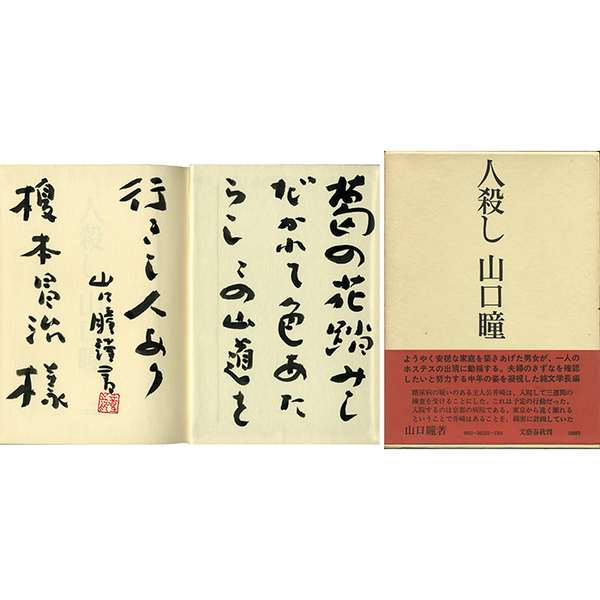 葛の花踏みし
だかれて色あた
らしこの山道を
行きし人あり
山口瞳
様
人殺し 山口瞳
ようやく安穏な家庭を築きあげた男女が、一人の
ホステスの出現に動揺する。夫婦のきずなを確認
したいと努力する中年の姿を凝視した純文学長編
糖尿病の疑いのある主人公井崎は、入院して三週間の
検査を受けることにした。これは予定の行動だった。
入院するのは京都の病院である。東京から遠く離れる
ということで井崎はあることを、綿密に計画していた
山口瞳著 文藝春秋刊